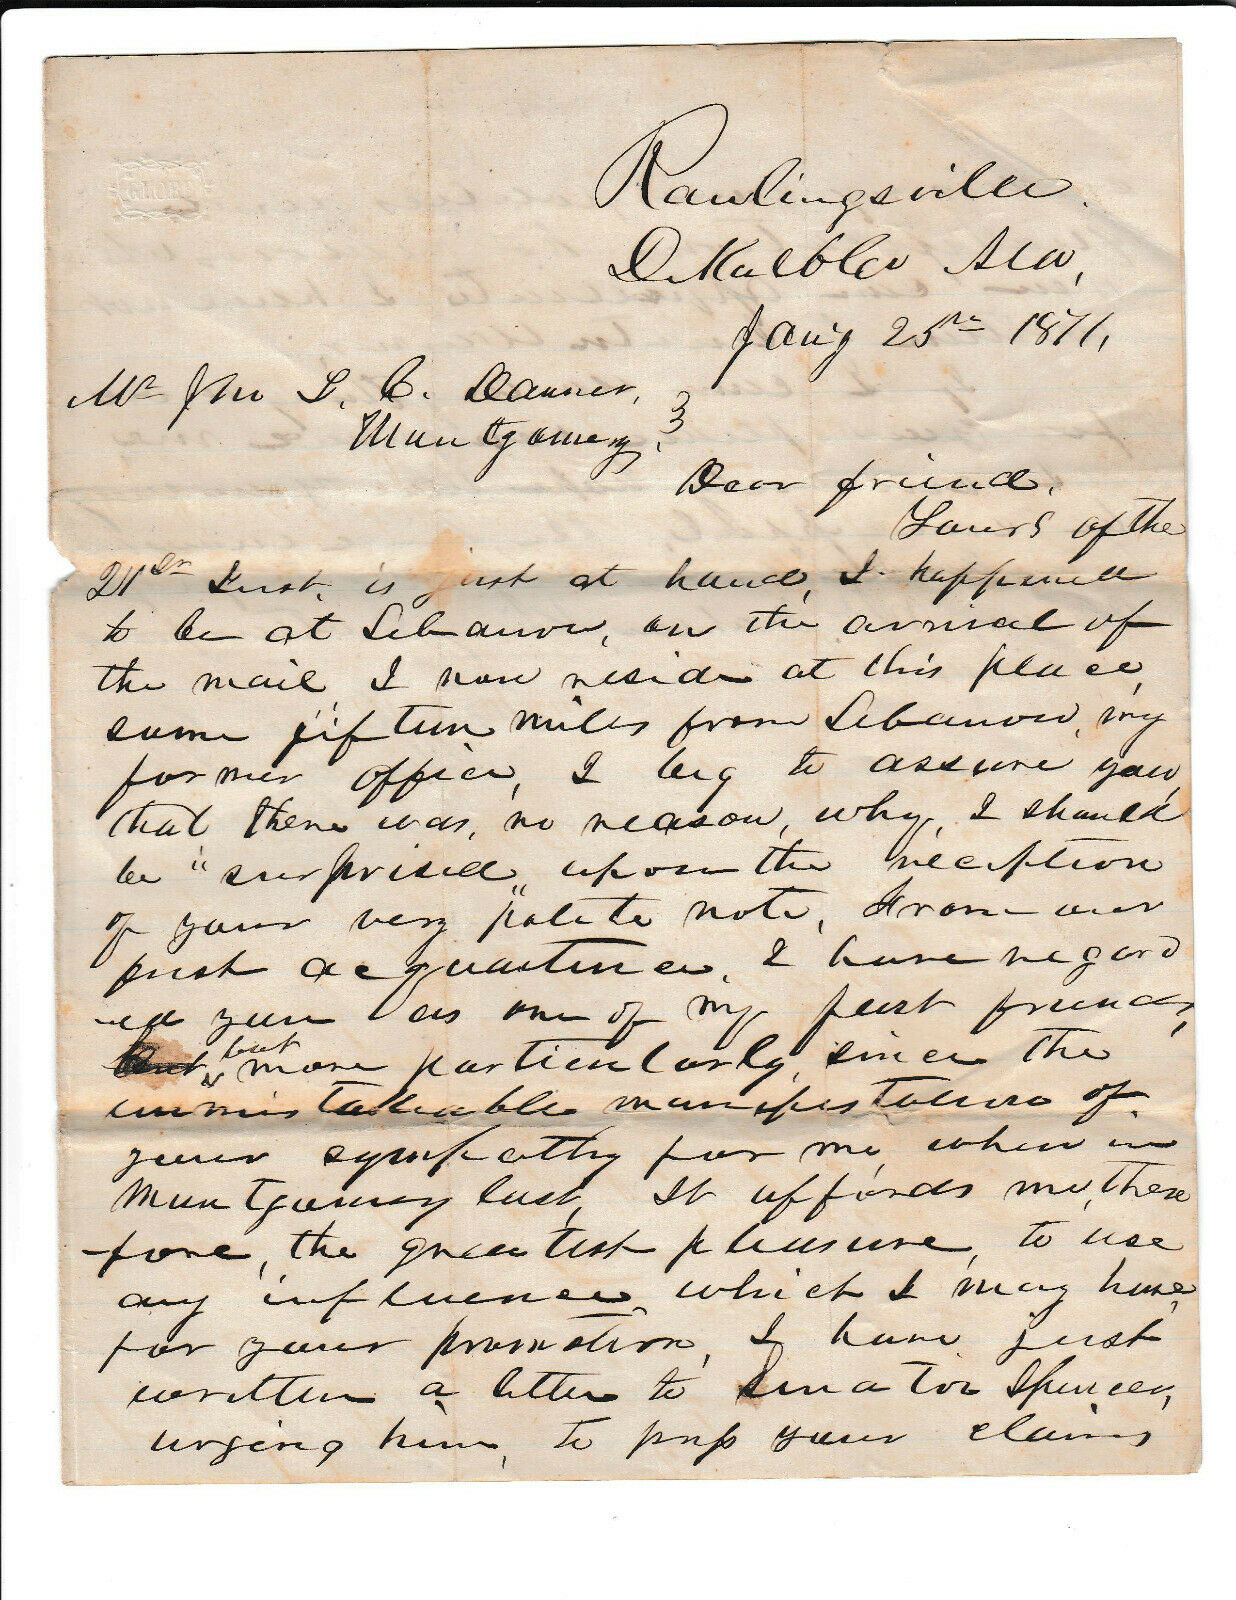 GLOBE
Rawlingsville
DeKalb Co Ala,
Jany 25th 1871,
Mr Jno L. C. Danner,
Montgomery,
Dear friend,
Yours of the
21st Inst, is just at hand, I happened
to be at Lebanon, on the arrival of
the mail I now reside at this place,
some fiftun miles from Lebanon, my
former office, I beg to assure you,
that there was, no reason, why, I should
be "surprised" upon the reception
of your very "polite note, From our
past acquaitince, I have regard
-ed you as one of my fast friends,
but more particularly, since the
unmistakeable manifestation of
your sympathy for me, when in
Montgomery last, It affords me, there
-fore, the greatest pleasure, to use
any influence, which I may have,
for your promotion, I have just
written a letter to Senator Spencer,
urging him, to press your claims